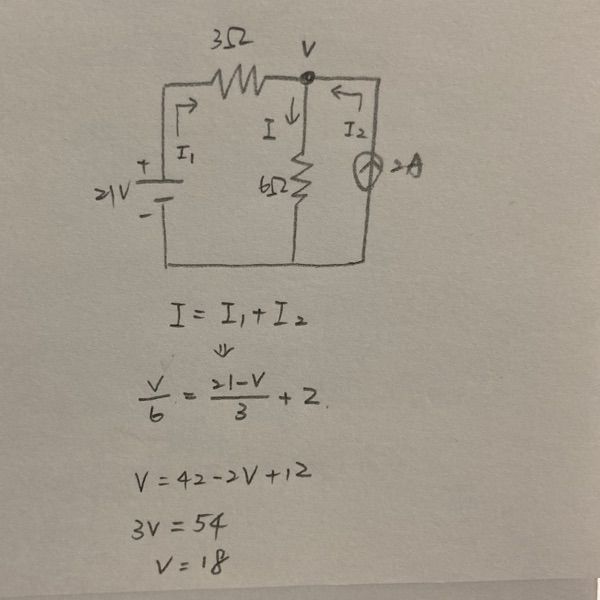 3Ω
V
I₁
I
I₂
+
21V
-
6Ω
2A
I = I₁ + I₂
⇓
V/6 = (21-V)/3 + 2.
V = 42 - 2V + 12
3V = 54
V = 18